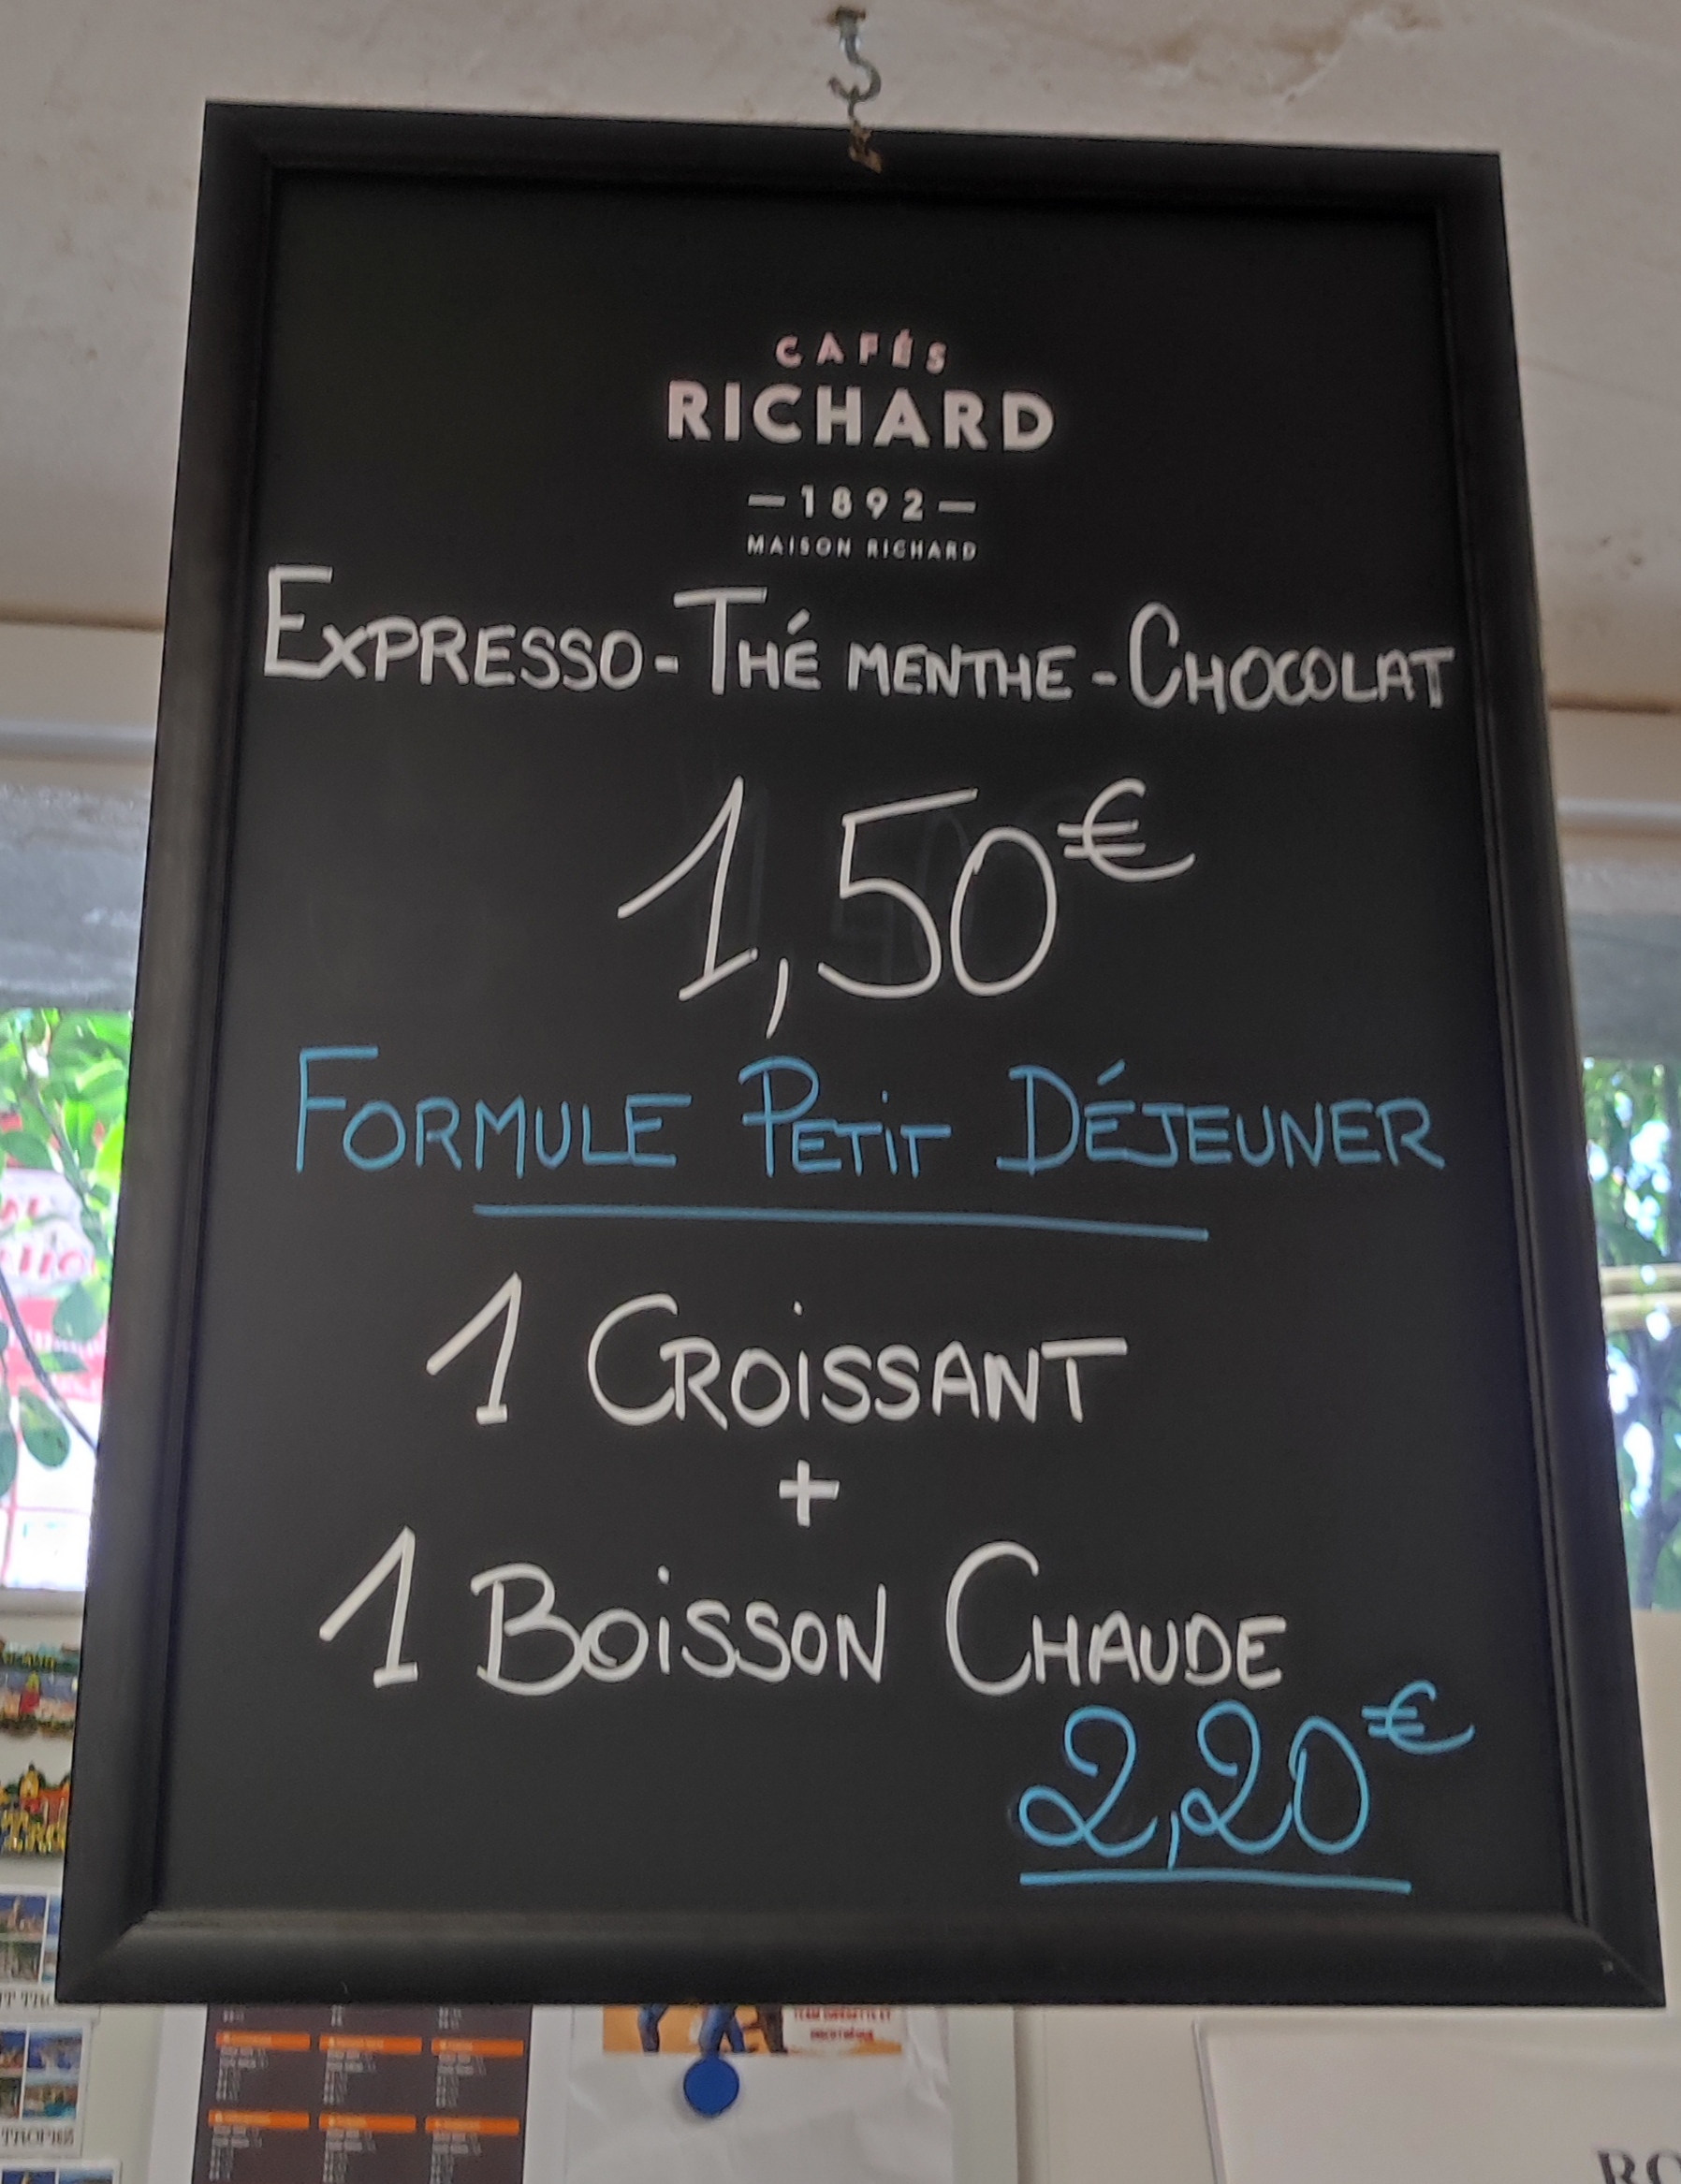 CAFÉS
RICHARD
—1892—
MAISON RICHARD
EXPRESSO-THÉ MENTHE-CHOCOLAT
1,50€
FORMULE PETIT DÉJEUNER
1 CROISSANT
+
1 BOISSON CHAUDE
2,20€